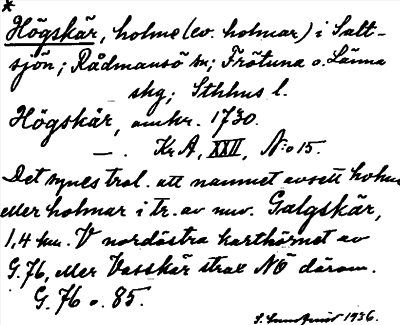 *
Högskär, holme (ev. holmar) i Salt-
sjön; Rådmansö sn; Frötuna o. Länna
skg; Sthlms l.
Högskär, omkr. 1730.
— . Kr A, XXII, N:o 15.
Det synes trol. att namnet avsett holme
eller holmar i tr. av nuv. Galgskär,
1,4 km. V nordöstra karthörnet av
G. 76, eller Vasskär strax NÖ därom.
G. 76 o. 85.
1936.